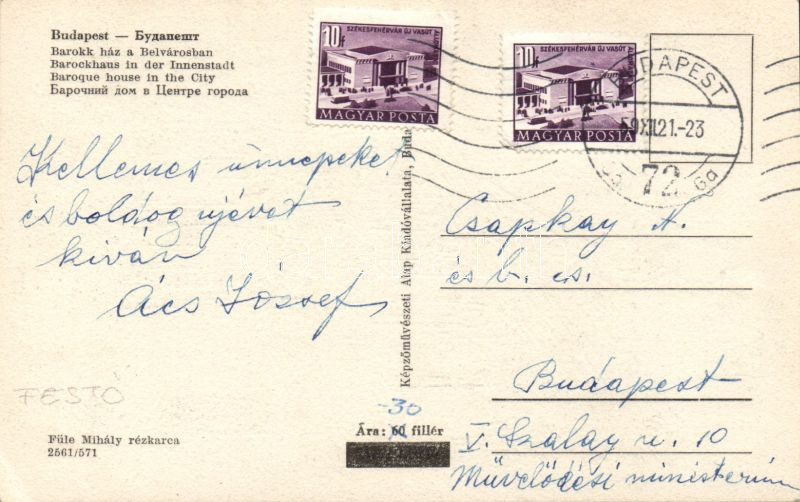 Budapest — Будапешт
Barokk ház a Belvárosban
Barockhaus in der Innenstadt
Baroque house in the City
Барочний дом в Центре города
10f
SZÉKESFEHÉRVÁR ÚJ VASÚT
MAGYAR POSTA
10f
SZÉKESFEHÉRVÁR ÚJ VASÚT
MAGYAR POSTA
BUDAPEST
59XII21.-23
72
6a
Kellemes ünnepeket
és boldog újévet
kíván
Ács József
Képzőművészeti Alap Kiadóvállalata, Buda
Csapkay A.
és b. cs.
Budapest
V. Szalay u. 10
Művelődési miniszterium
FESTŐ
Füle Mihály rézkarca
2561/571
-30
Ára: 60 fillér